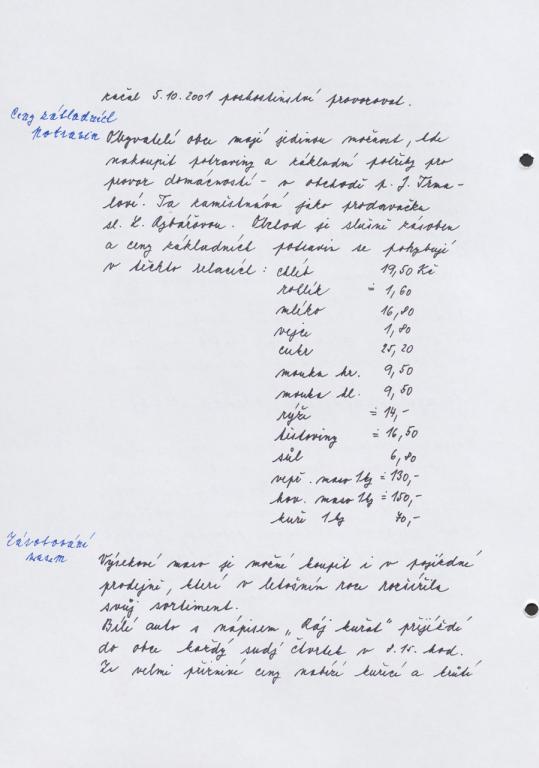 začal 5.10.2001 pohostinství provozovat.
Ceny základních
potravin
Obyvatelé obce mají jedinou možnost, kde
nakoupit potraviny a základní potřeby pro
provoz domácností - v obchodě p. J. Trma-
lové. Ta zaměstnává jako prodavačku
sl. L.
Obchod je slušně zásoben
a ceny základních potravin se pohybují
v těchto relacích: chléb 19,50 Kč
rohlík = 1,60
mléko 16,80
vejce 1,80
cukr 25,20
mouka hr. 9,50
mouka hl. 9,50
rýže = 14,-
těstoviny = 16,50
sůl 6,80
vepř. maso 1kg = 130,-
hov. maso 1kg = 150,-
kuře 1kg 70,-
Zásobování
masem
Výsekové maso je možné koupit i v pojízdné
prodejně, která v letošním roce rozšířila
svůj sortiment.
Bílé auto s nápisem „Ráj kuřat" přijíždí
do obce každý sudý čtvrtek v 8.15 hod.
Za velmi příznivé ceny nabízí kuřecí a krůtí